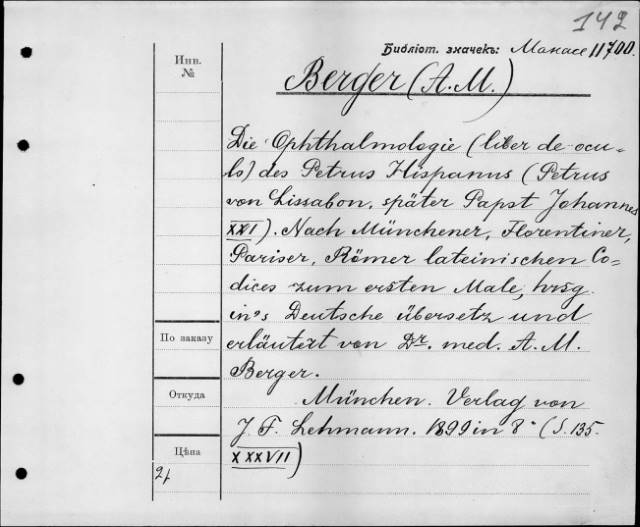 142
Библіот. значекъ: Манасе 11700.
Инв.
№
Berger (A. M.)
Die Ophthalmologie (liber de ocu-
lo) des Petrus Hispanus (Petrus
von Lissabon, später Papst Johannes
XXI). Nach Münchener, Florentiner,
Pariser, Römer lateinischen Co-
dices zum ersten Male, hrsg.
in's Deutsche übersetz und
erläutert von Dr. med. A. M.
Berger.
По заказу
Откуда
München. Verlag von
J. F. Lehmann. 1899 in 8° (S. 135.
XXXVII)
Цѣна